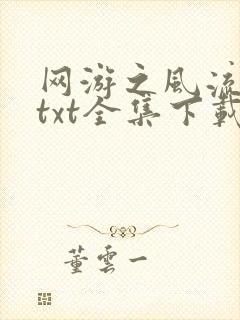 网游之风流
txt全集下载
董雲一